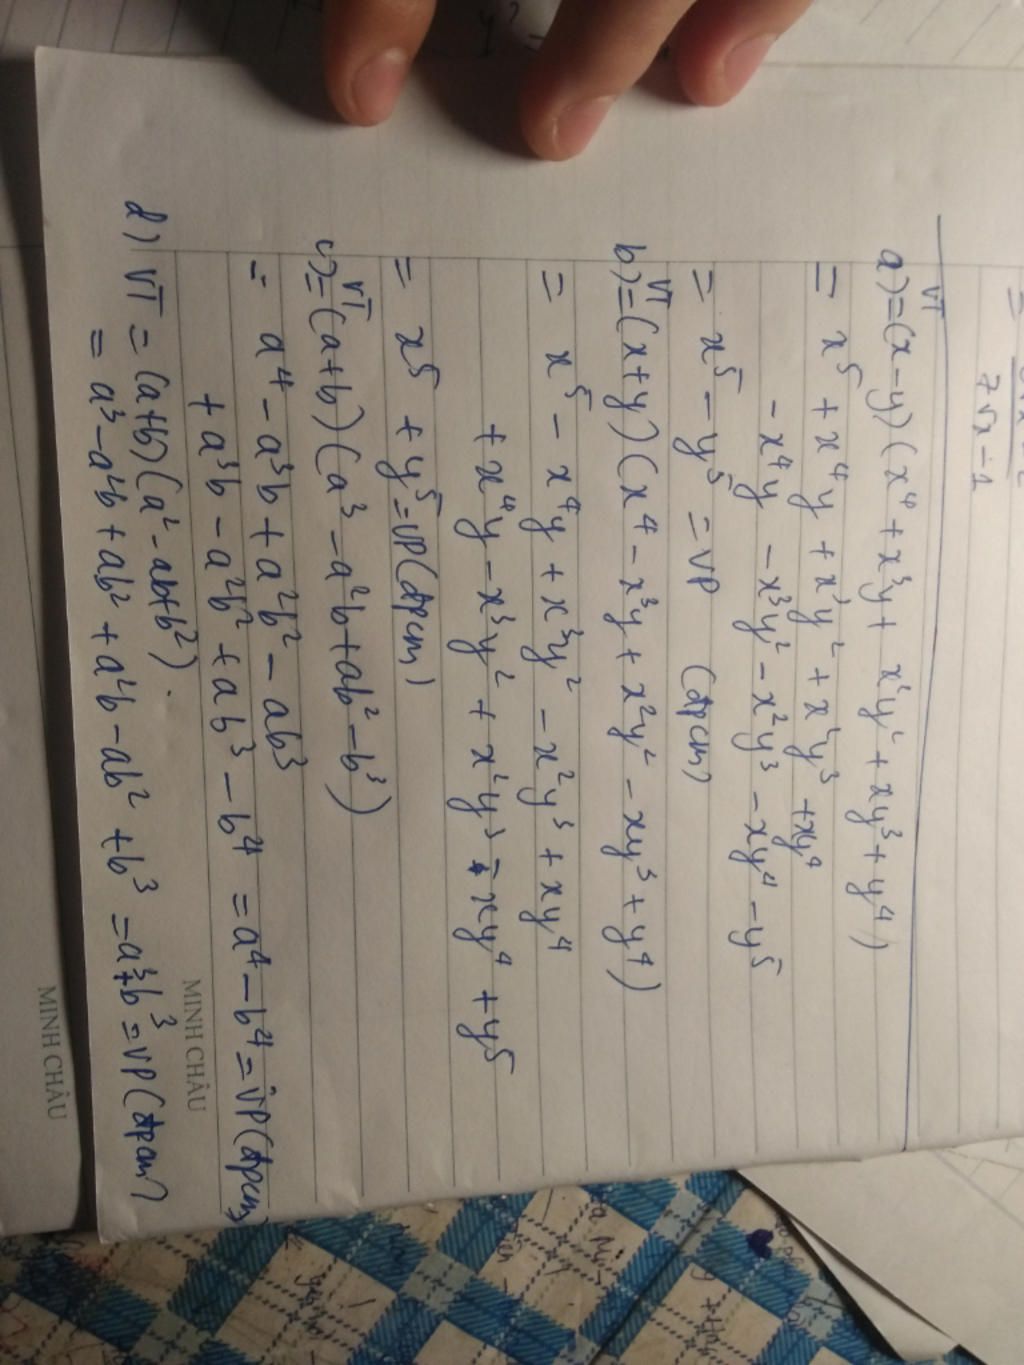 7√x - 1
a) VT = (x-y)(x⁴ + x³y + x²y² + xy³ + y⁴)
= x⁵ + x⁴y + x³y² + x²y³ + xy⁴
- x⁴y - x³y² - x²y³ - xy⁴ - y⁵
= x⁵ - y⁵ = VP (đpcm)
b) VT = (x+y)(x⁴ - x³y + x²y² - xy³ + y⁴)
= x⁵ - x⁴y + x³y² - x²y³ + xy⁴
+ x⁴y - x³y² + x²y³ - xy⁴ + y⁵
= x⁵ + y⁵ = VP (đpcm)
c) VT = (a+b)(a³ - a²b + ab² - b³)
= a⁴ - a³b + a²b² - ab³
+ a³b - a²b² + ab³ - b⁴ = a⁴ - b⁴ = VP (đpcm)
d) VT = (a+b)(a² - ab + b²).
= a³ - a²b + ab² + a²b - ab² + b³ = a³ + b³ = VP (đpcm)
MINH CHÂU
MINH CHÂU